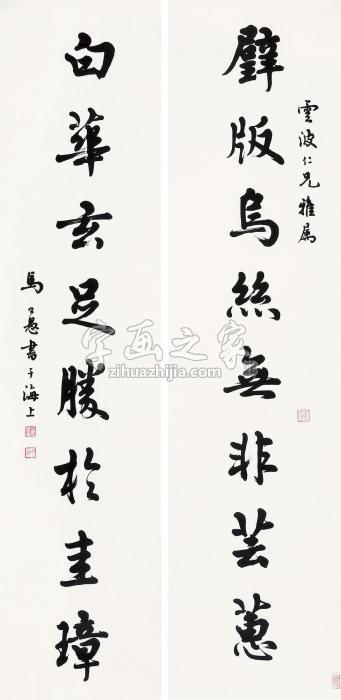 雲波仁兄雅属
擘版烏絲無非芸蕙
句華玄足勝於圭璋
馬公愚書于海上
字画之家
zihuazhijia.com